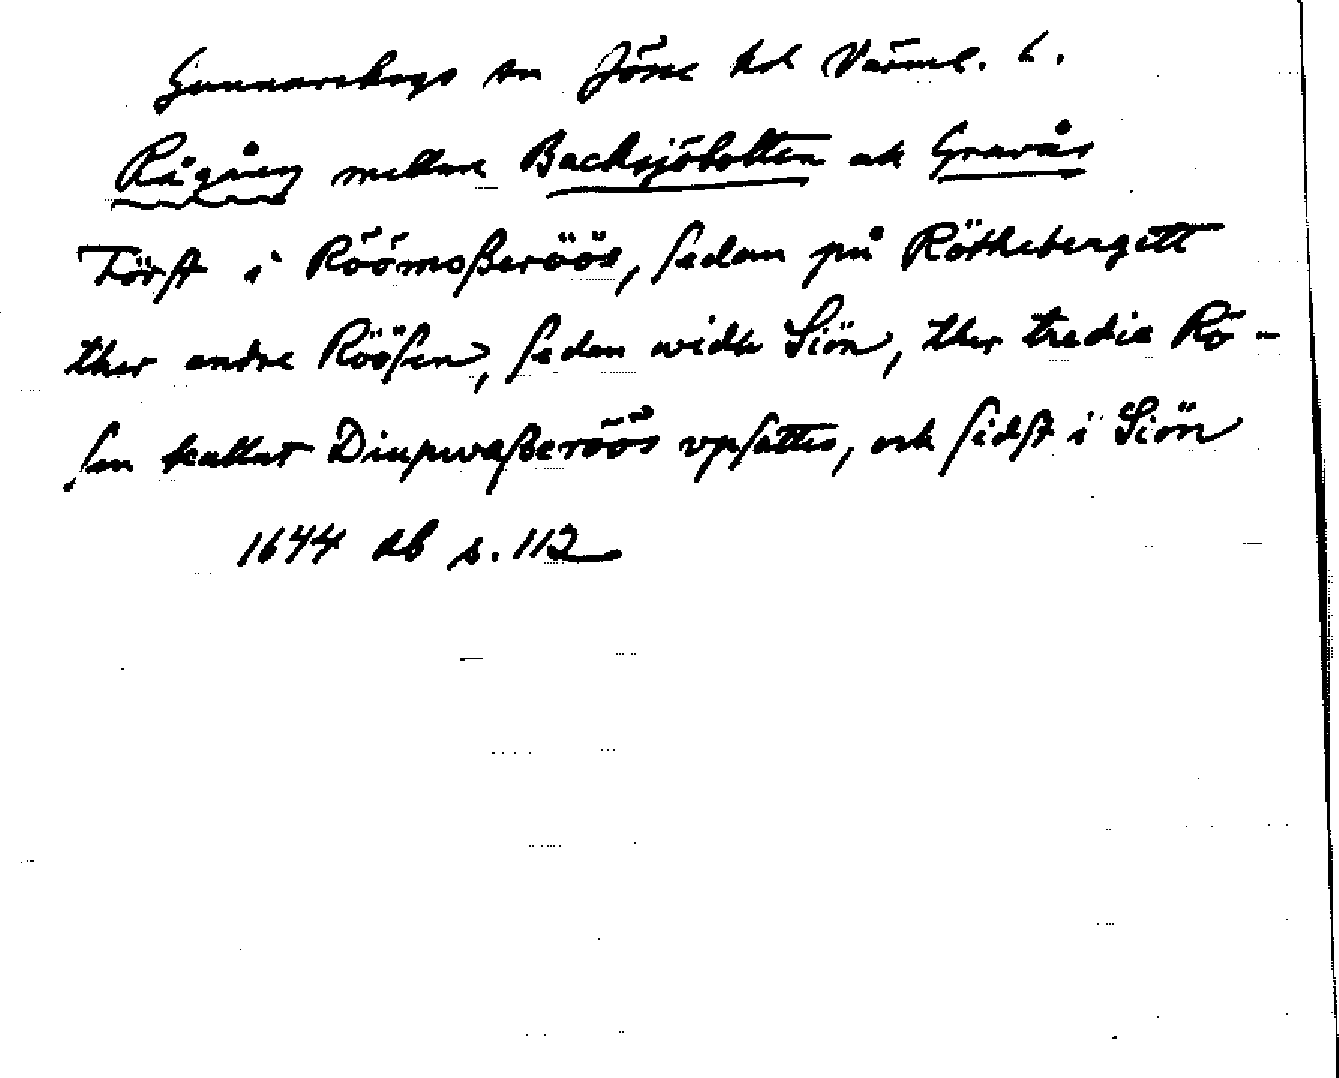 Gunnarskogs sn Jösse hd Värml. l.
Rågång mellan Backsjöbotten ock Gravås
Förſt i Röömoßeröös, ſedan på Röthebergett
ther andre Rööſen, ſedan widh Siön, ther tredie Rö-
ſen kallat Diupwaßeröös vpſattes, och ſidſt i Siön
1644 db s. 112